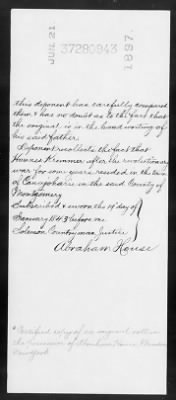 JUN. 21
37280943
1897.
this deponent has carefully compared
them & has no doubt as to the fact that
the original is in the hand writing of
his said father
Deponent recollects the fact that
after the revolutionary
war for some years resided in the town
of Canajoharie in the said County of
Montgomery
Subscribed & sworn the 19 day of
January 1843 before me
Solomon justice
Abraham House
Certified copy of an original roll in
the possession of Abraham House